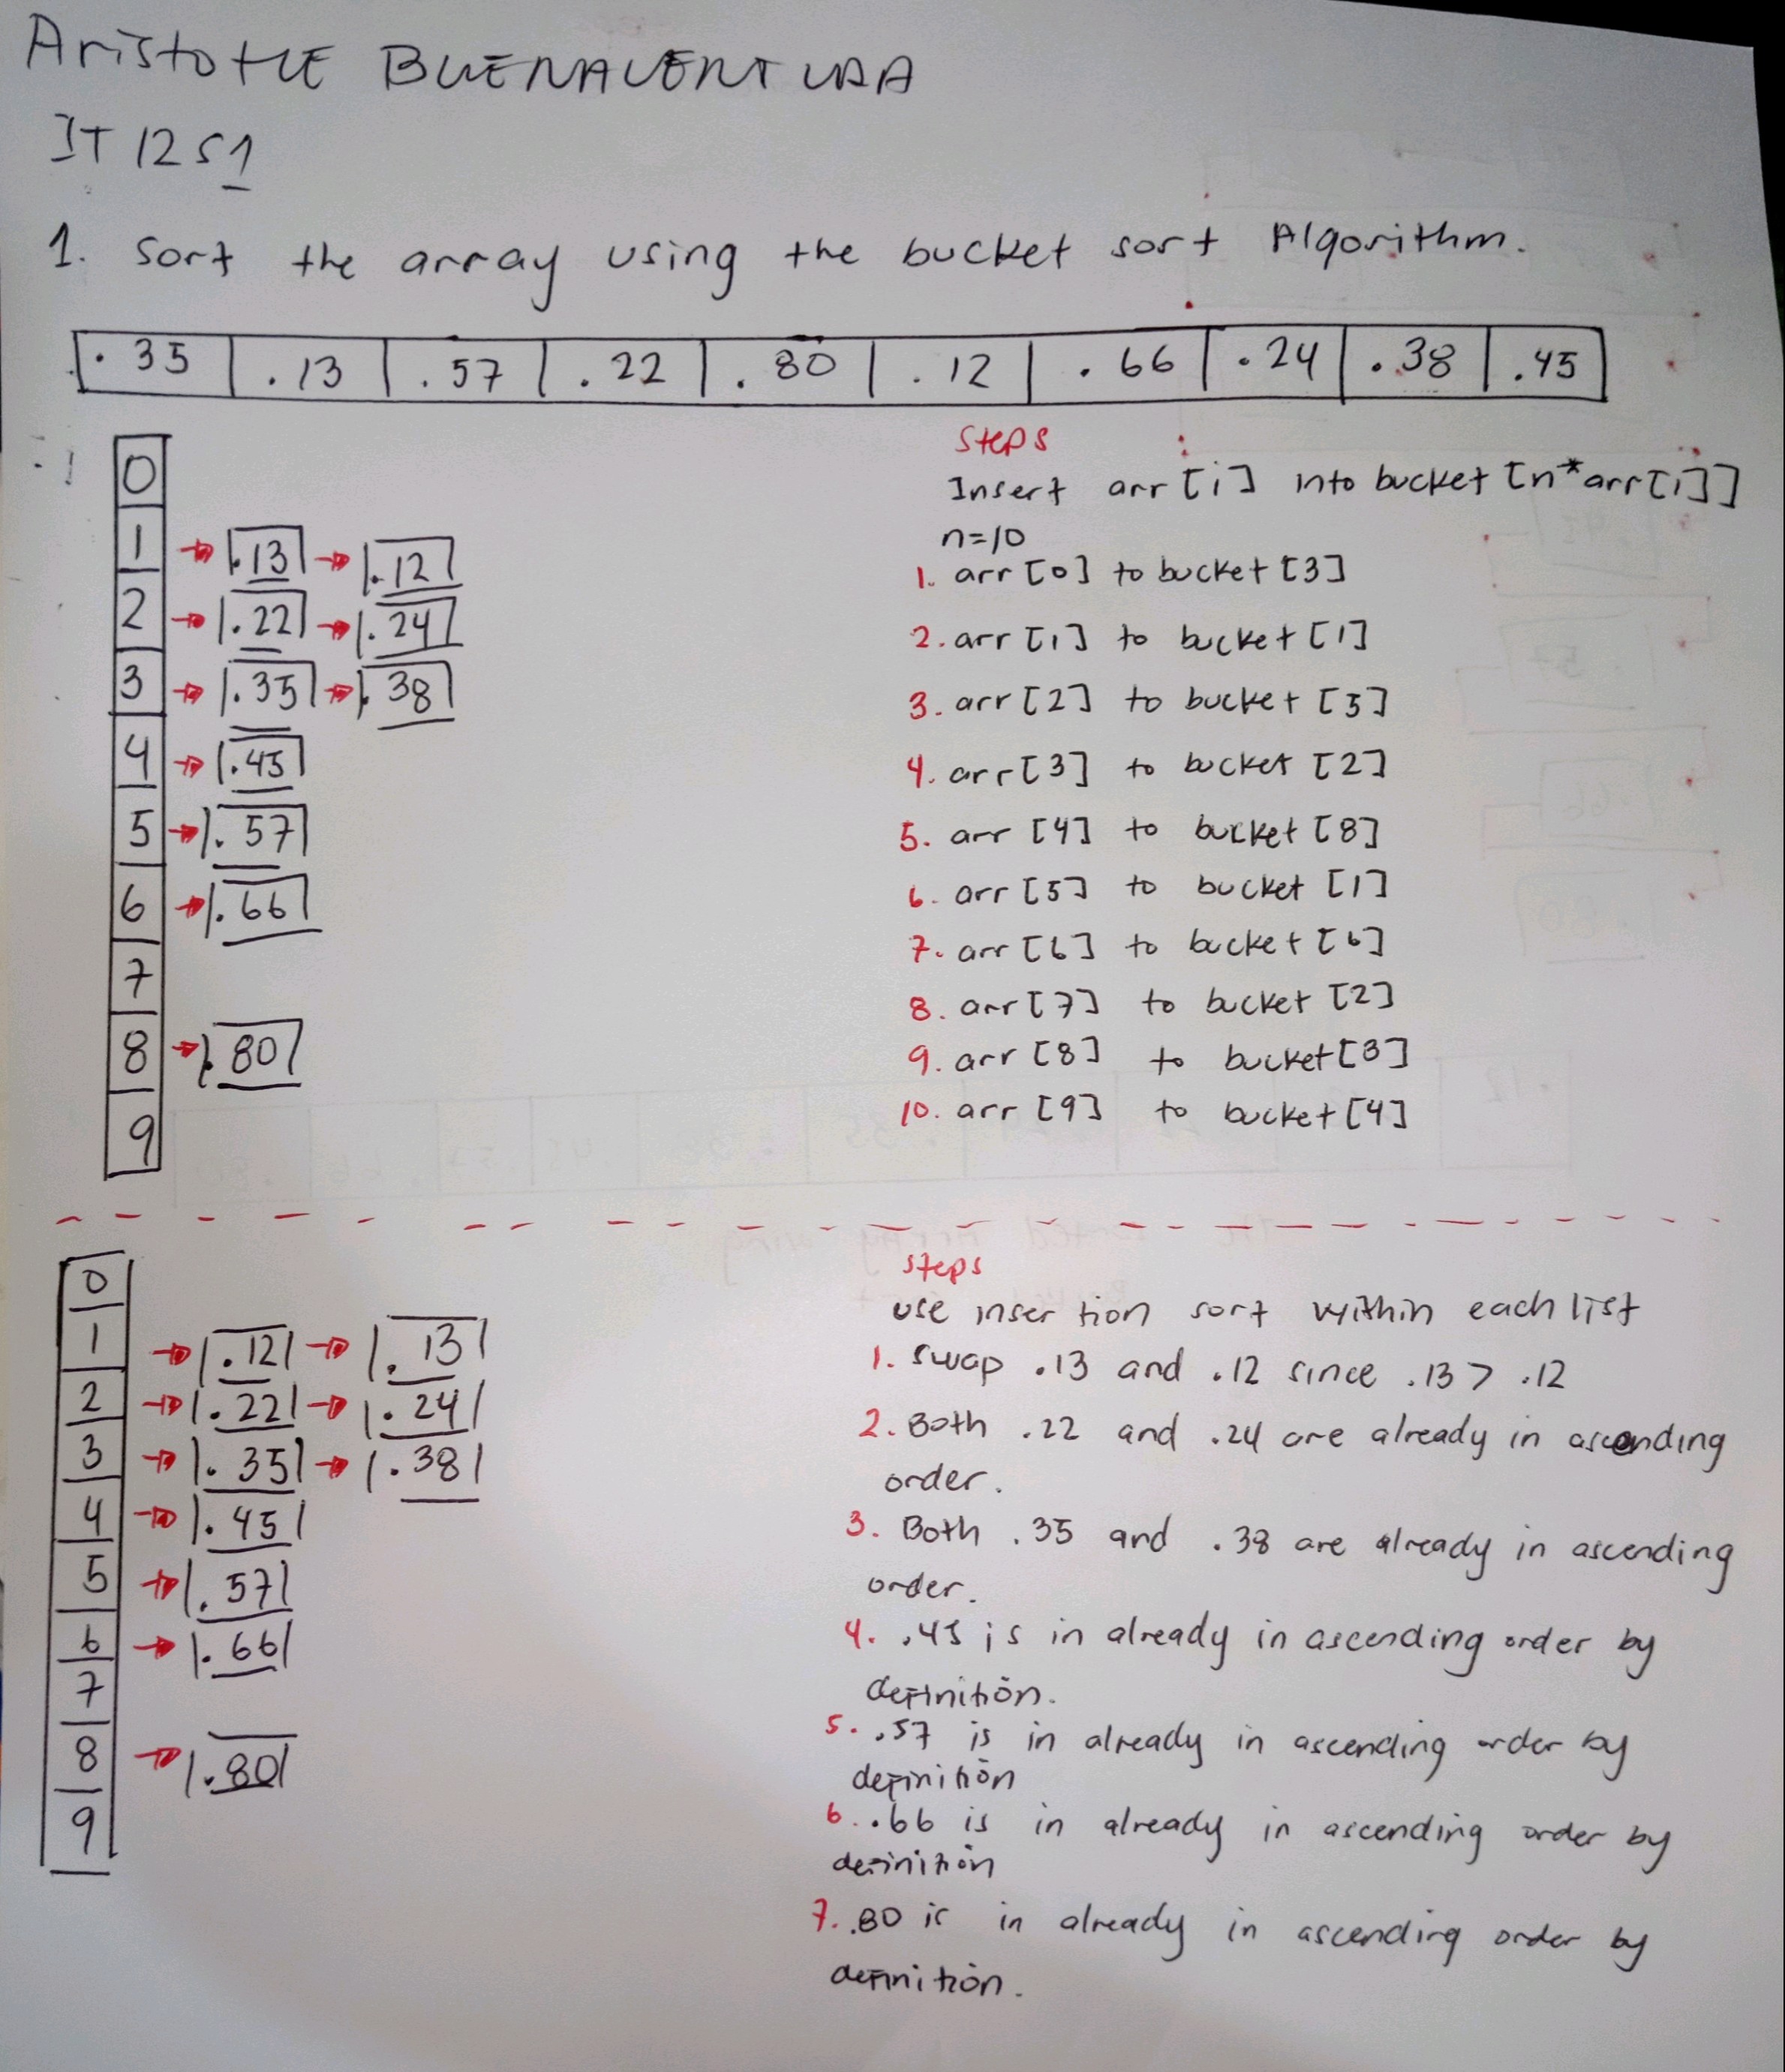 Aristotle BUENAVENTURA
IT 12S1
1. Sort the array using the bucket sort Algorithm.
.35 .13 .57 .22 .80 .12 .66 .24 .38 .45
0
1 .13 .12
2 .22 .24
3 .35 .38
4 .45
5 .57
6 .66
7
8 .80
9
Steps
Insert arr[i] into bucket [n*arr[i]]
n=10
1. arr[0] to bucket [3]
2. arr[1] to bucket [1]
3. arr[2] to bucket [5]
4. arr[3] to bucket [2]
5. arr [4] to bucket [8]
6. arr [5] to bucket [1]
7. arr [6] to bucket [6]
8. arr [7] to bucket [2]
9. arr [8] to bucket [3]
10. arr [9] to bucket [4]
0
1 .12 .13
2 .22 .24
3 .35 .38
4 .45
5 .57
6 .66
7
8 .80
9
steps
use insertion sort within each list
1. swap .13 and .12 since .13 > .12
2. Both .22 and .24 are already in ascending
order.
3. Both .35 and .38 are already in ascending
order.
4. .45 is in already in ascending order by
definition.
5. .57 is in already in ascending order by
definition
6. .66 is in already in ascending order by
definition
7. .80 is in already in ascending order by
definition.